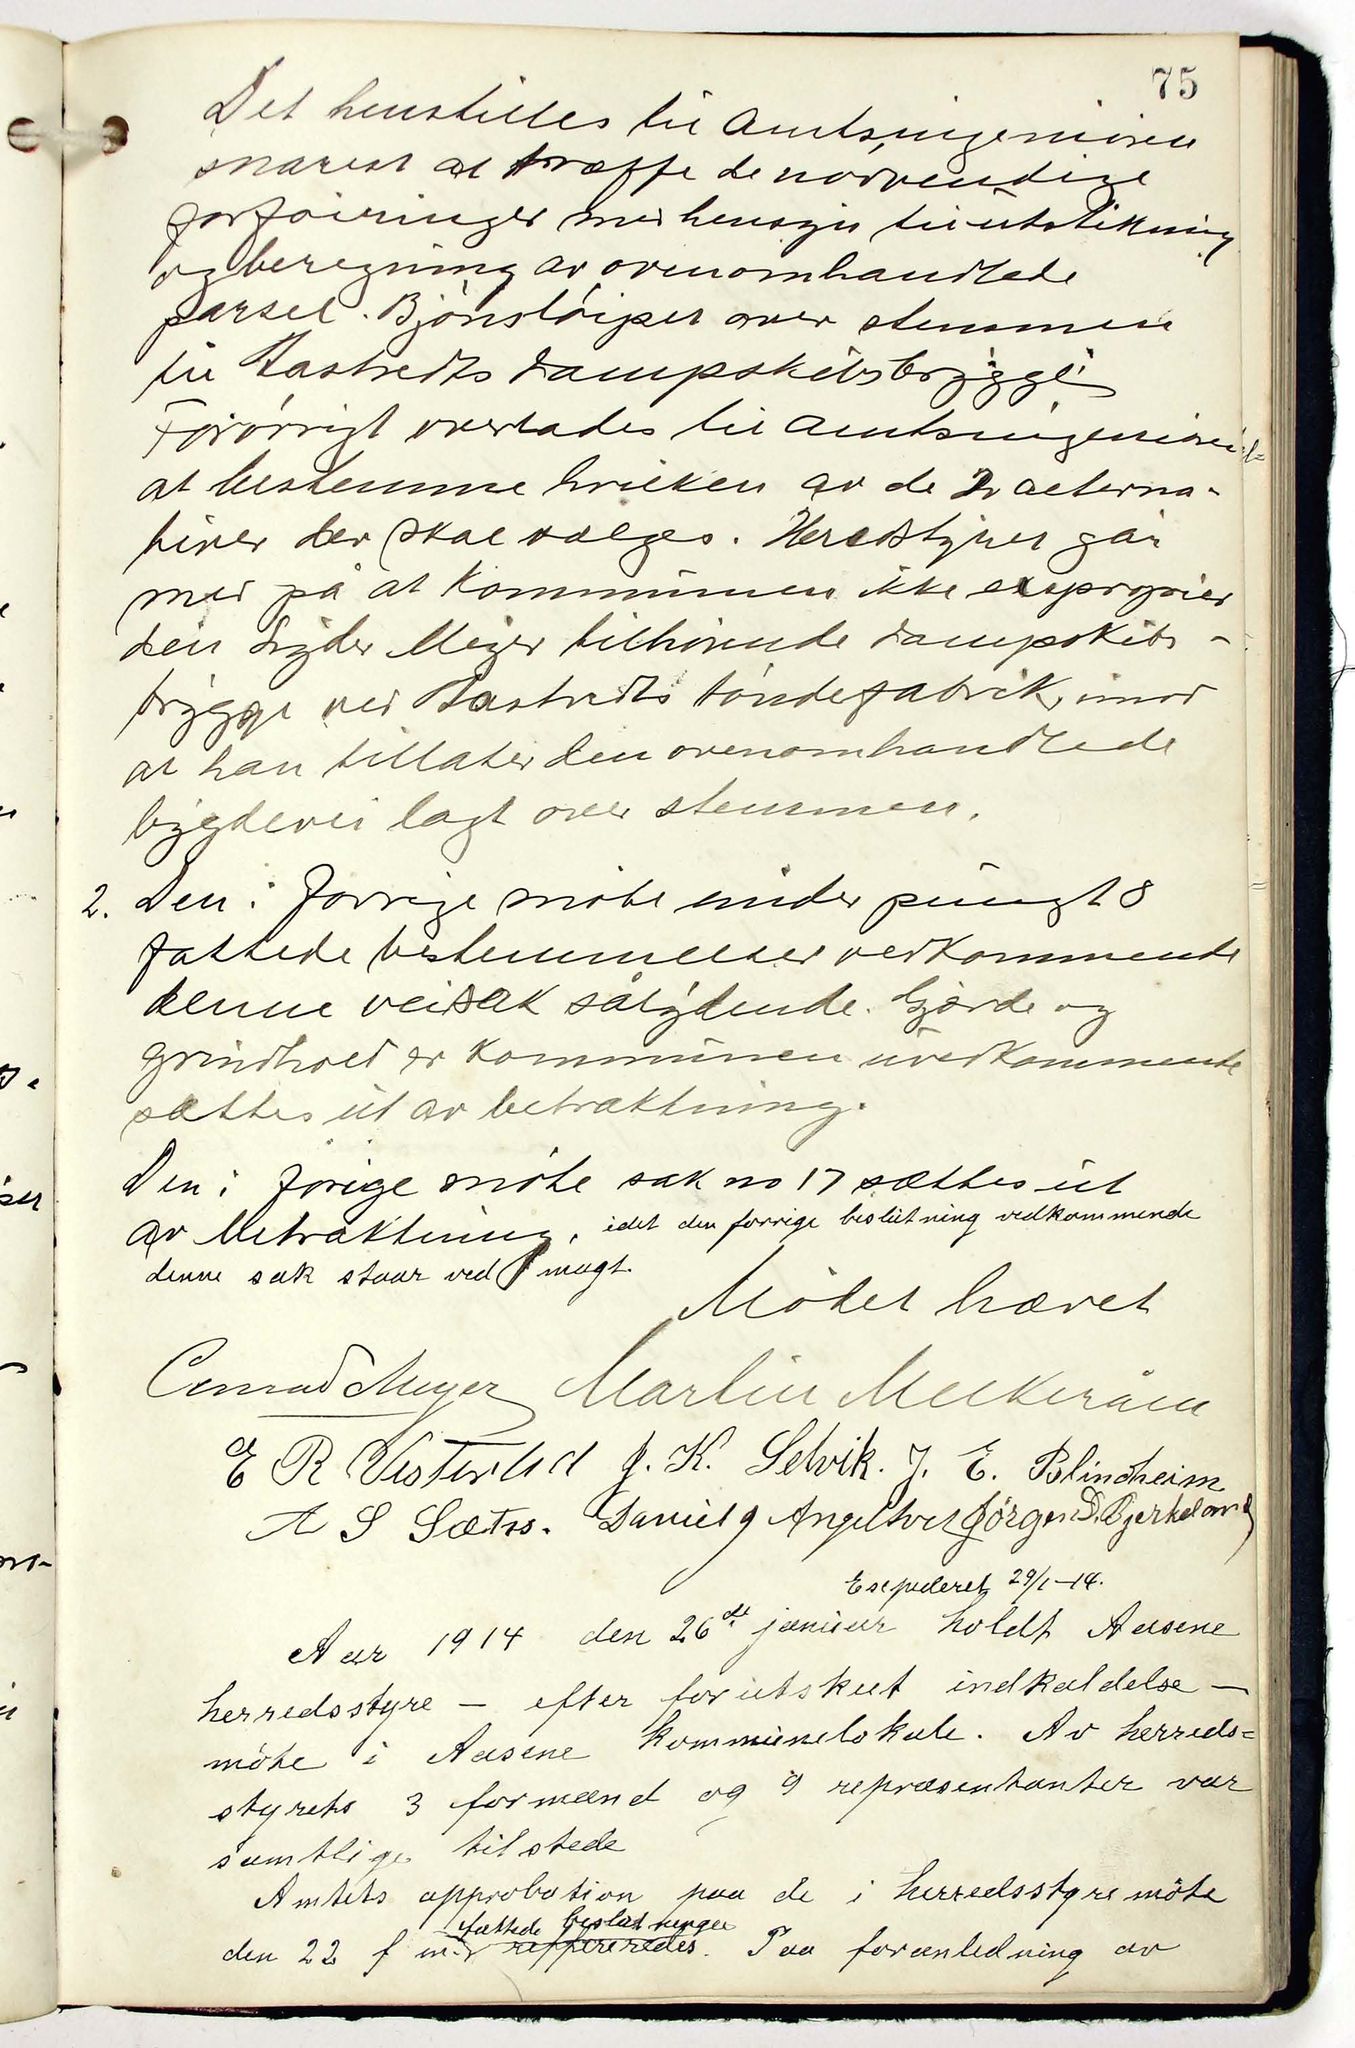 75
Det henstilles til Amtsingeniøren
snarest at træffe de nødvendige
forføininger med hensyn til utstikning
og beregning av ovenomhandlede
parsel. Bjönstöipet over stemmen
til Aastvedts dampskibsbrygge
Forövrigt overlades til Amtsingeniören
at bestemme hvilken av de 2 alterna-
tiver der skal vælges. Heredstyret går
med på at Kommunen ikke exproprier
den hr. Meyer tilhörende dampskibs-
brygge ved Aastvedts töndefabrik, imod
at han tillater den ovenomhandlede
bygdevei lagt over stemmen.
2. Den i forrige möte under pungt 8
fattede bestemmelser vedkommende
denne veisak sålydende. Gjærde og
grindhold er Kommunen uvedkommende
sættes ut av betraktning.
Den i forige möte sak no 17 sættes ut
av betraktning, idet den forrige beslutning vedkommende
denne sak staar ved magt.
Mödet hævet
Conrad Meyer Martin Melkeråen
E R Vesterlid J. K. Selvik. J. E. Blindheim
A S Sætre. Daniel J Angeltveit Jörgen D. Bjerkeland
Exspederet 29/1-14.
Aar 1914 den 26de januar holdt Aasene
herredsstyre – efter forutskut indkaldelse –
möte i Aasene kommunelokale. Av herreds=
styrets 3 formænd og 9 repræsentanter var
samtlige tilstede
Amtets approbation paa de i herredsstyremöte
fattede beslutninger
den 22 f m. refereredes. Paa foranledning av